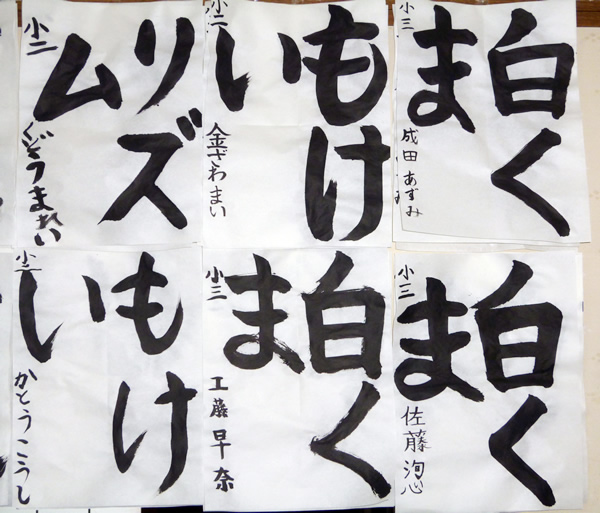 白く
ま
小三 成田あずみ
もけ
い
小二 金ざわまい
リズ
ム
小二
白く
ま
小三 佐藤洵心
白く
ま
小三 工藤早奈
もけ
い
小二 かとうこうし